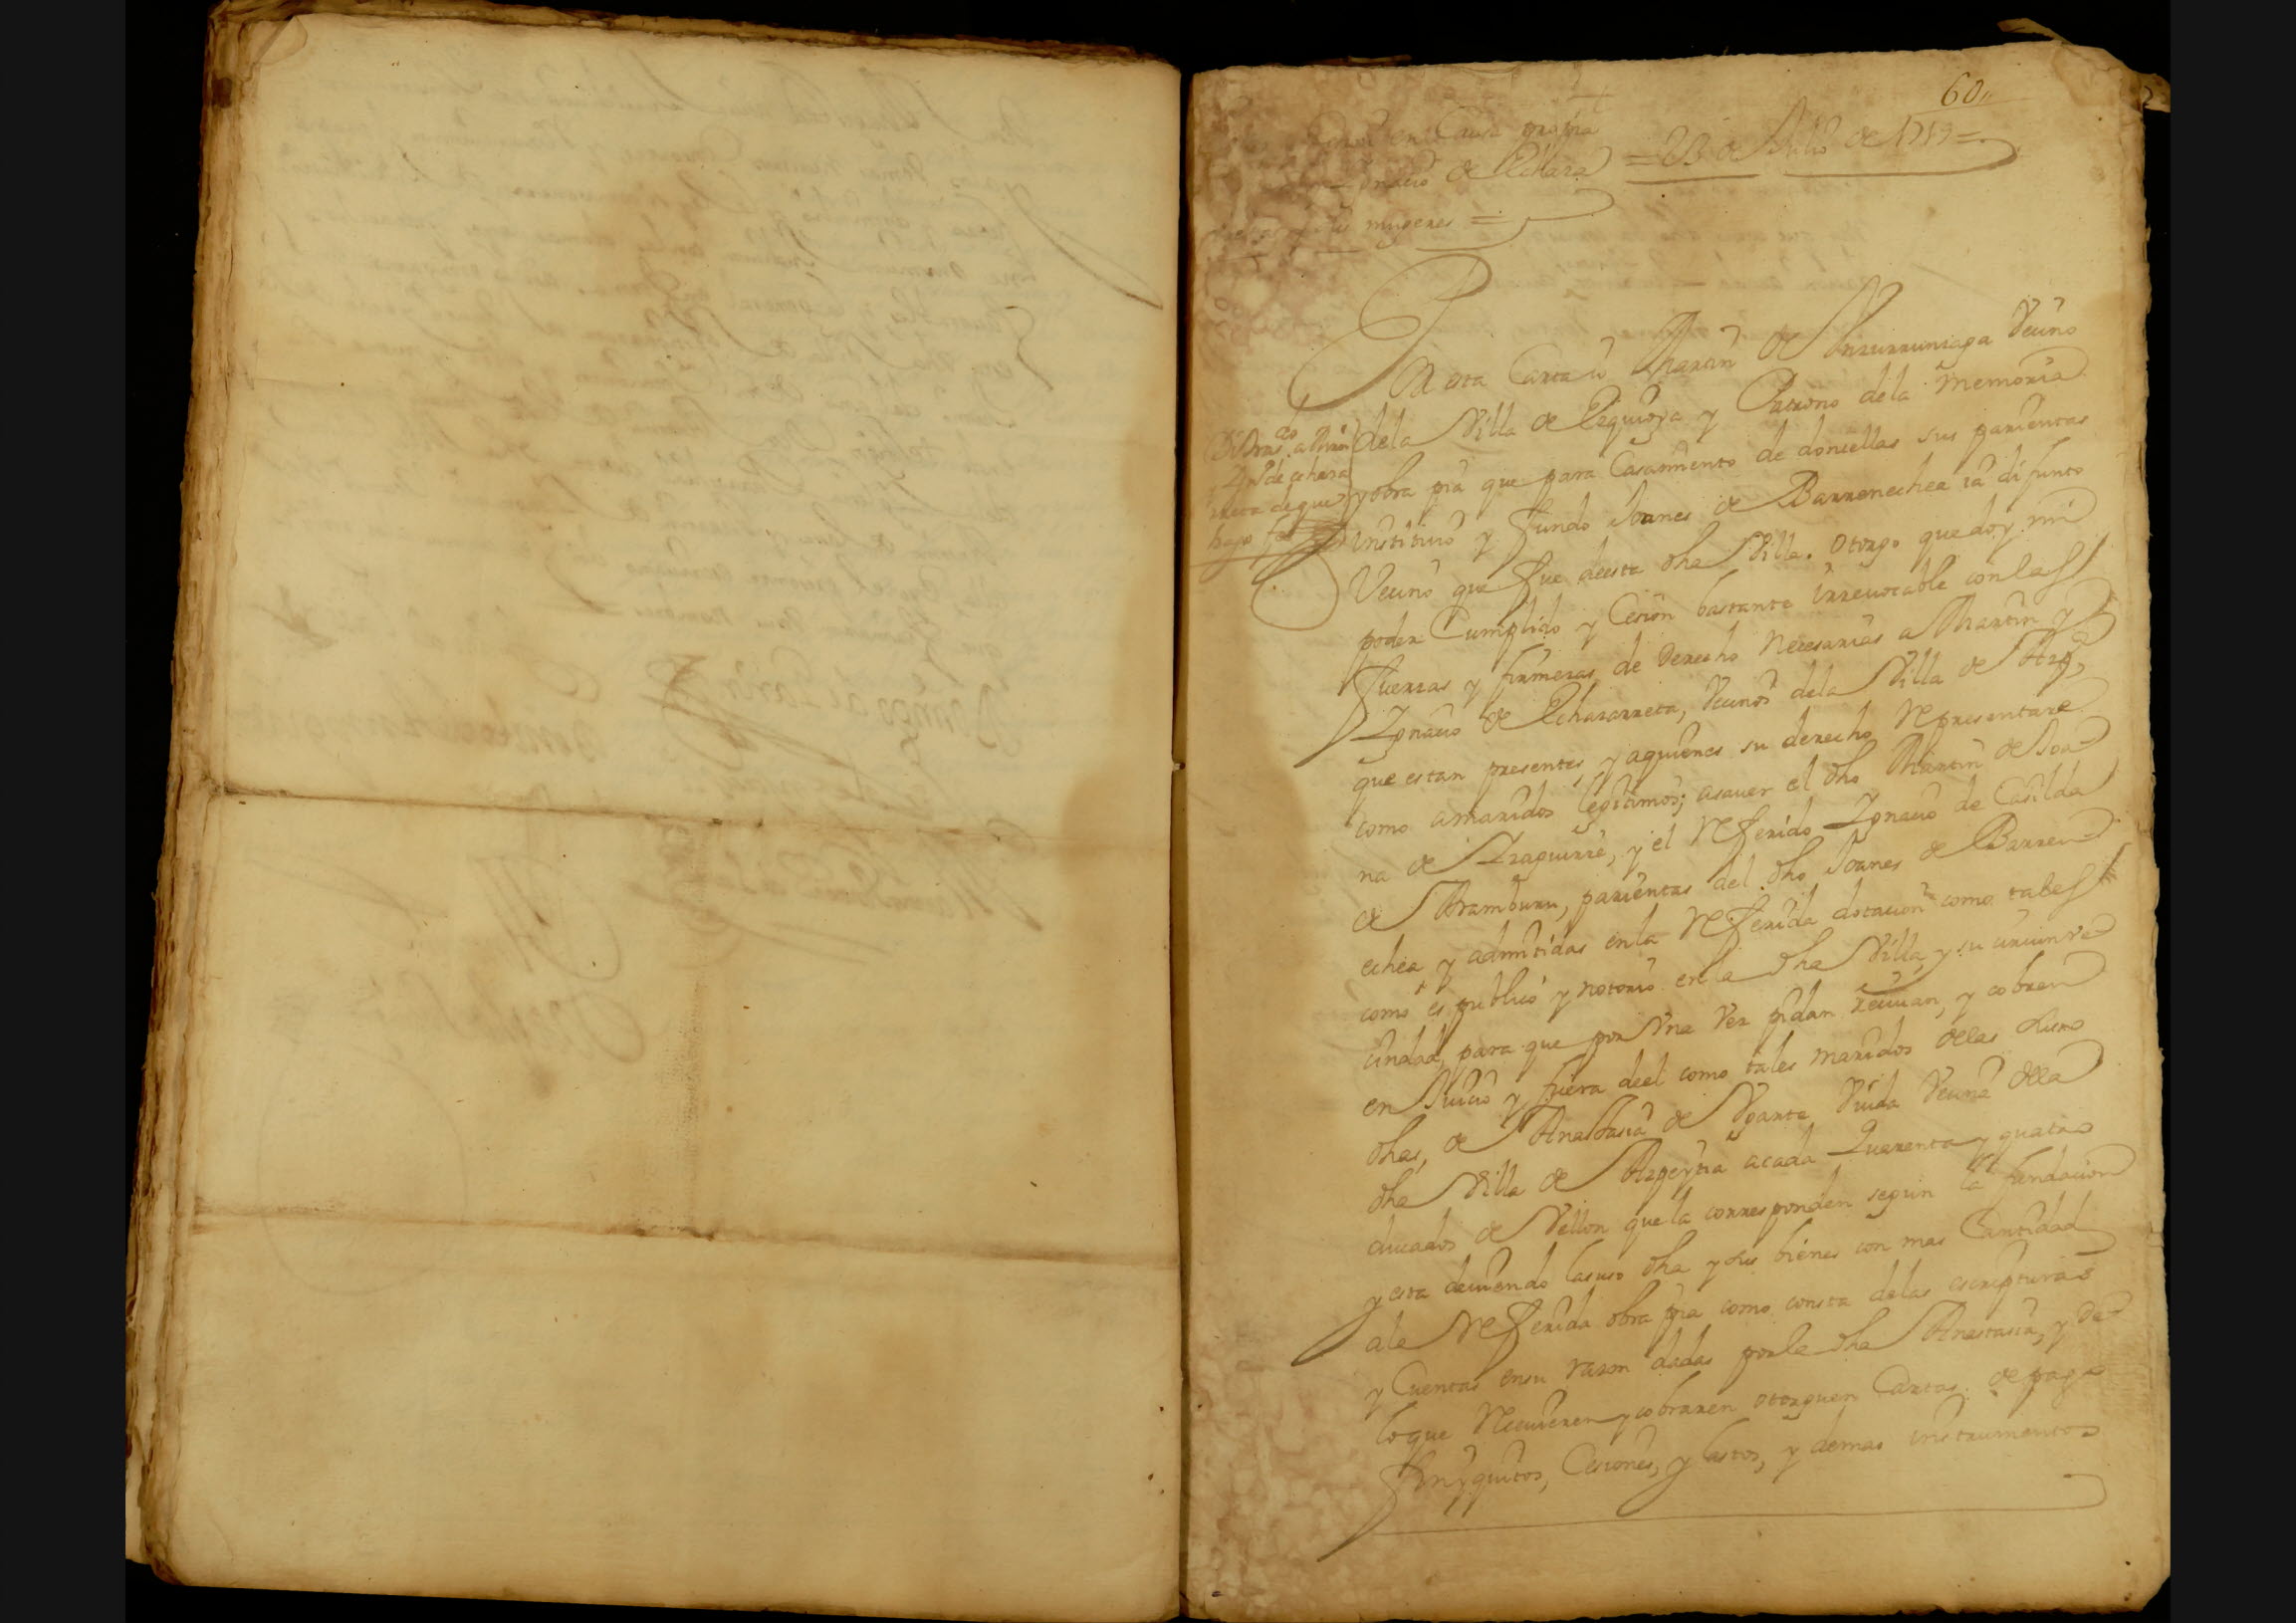 60
Poder en Causa propia
Ignacio de Echaza = 23 de Julio de 1719 =
mugeres =
Por esta Carta io Martin de Inzurruniaga Vecino
dela Villa de Ezquioga y Patrono dela memoria
y obra pia que para Casamiento de doncellas sus parientas
instituio y fundo Joanes de Barrenechea ia difunto
Vecino que fue deesta dha Villa. Otorgo que doy mi
poder Cumplido y Cesion bastante irreuocable con las
fuerzas y firmezas de derecho Necesarias a Martin y
Ignacio de Echazarreta, Vecinos dela Villa de Azp.ª
que estan presentes y aquienes su derecho representare
como amaridos legitimos; asauer el dho Martin de Joa
na de Izaguirre, y el Referido Ignacio de Casilda
de Aramburu, parientas del dho Joanes de Barren
echea y admitidas enla Referida dotacion como tales
como es publico y notorio en la dha Villa y su circunve
cindad, para que por Vna Vez pidan reciuan, y cobren
en Juicio y fuera deel como tales maridos delas suso
dhas, de Anastasia de Vgarte Viuda Vecina dela
dha Villa de Azpeytia acada Quarenta y quatro
ducados de Vellon que la corresponden segun la fundacion
y esta deuiendo lasuso dha y sus bienes con mas Cantidad
ala Referida obra pia como consta delas escripturas
y Cuentas ensu razon dadas porla dha Anastasia, y de
loque Reciuieren y cobraren otorguen Cartas de pago
finyquitos, Cesiones, y lastos, y demas instrumentos
Di tras.do a Martin
Ign.º de echaza
rreta de que
hago fe